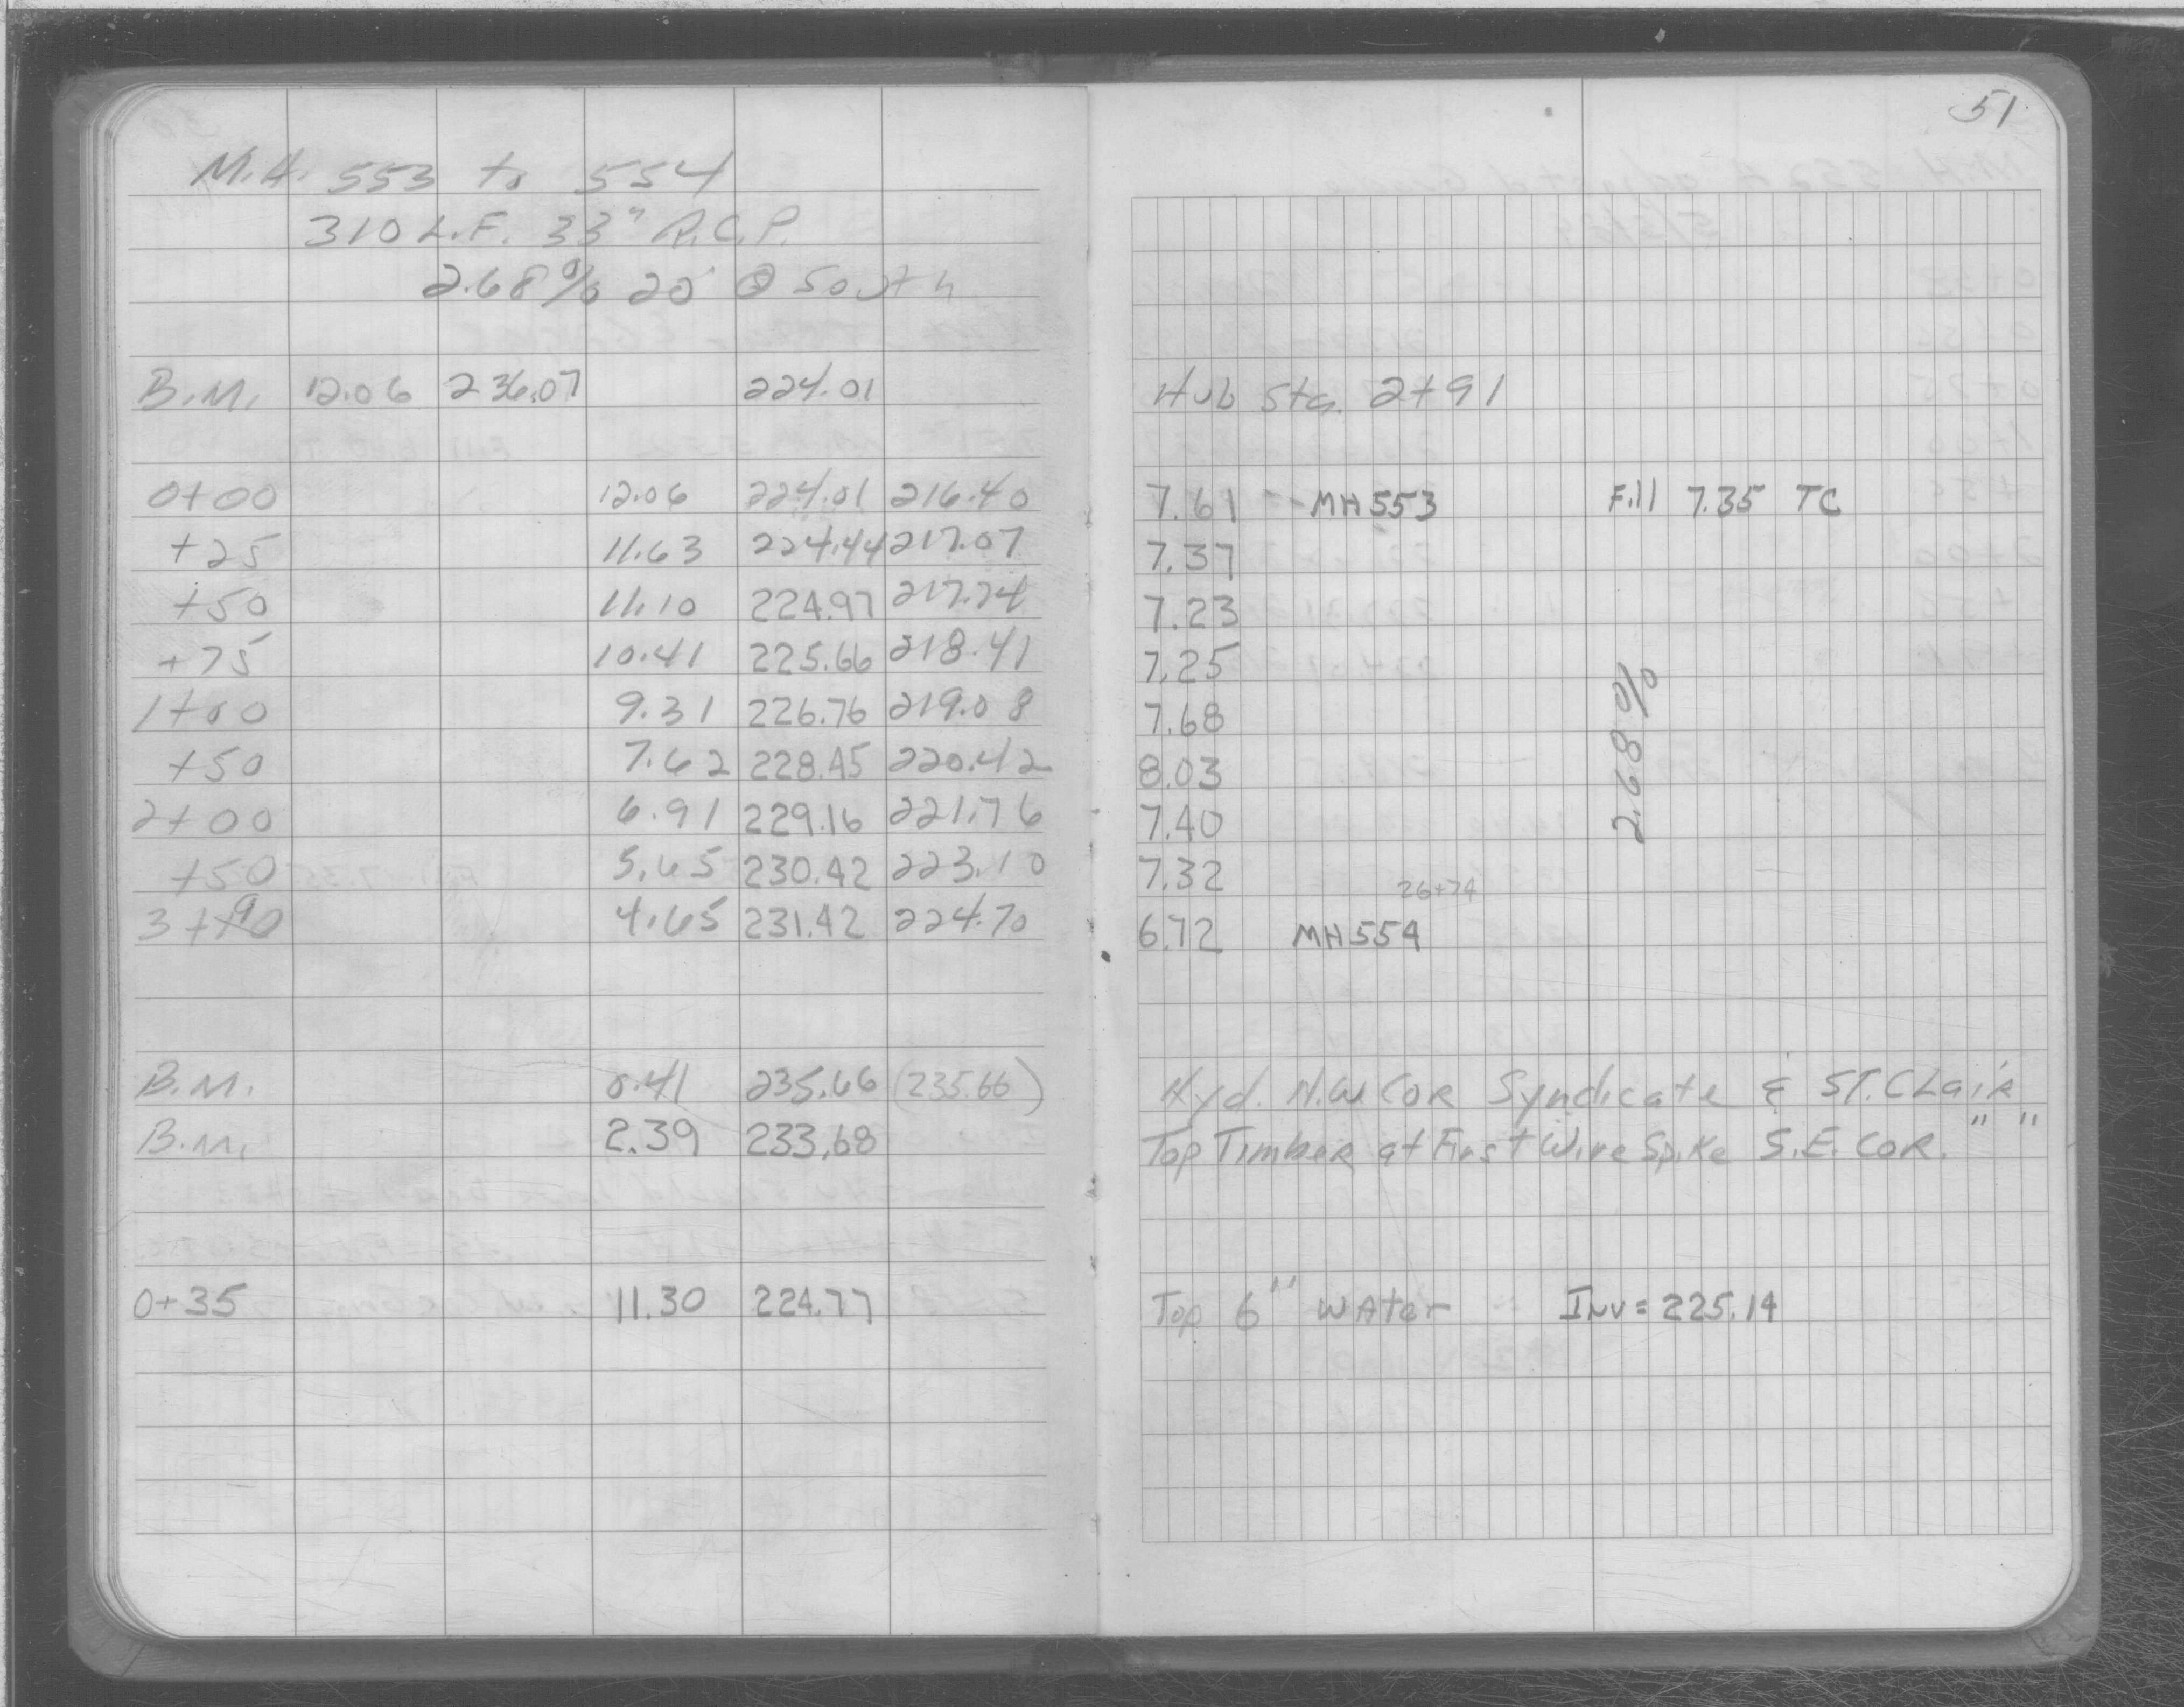 51
M.H. 553 to 554
310 L.F. 33" R.C.P.
2.68% 20' @ South
B.M. 12.06 236.07 224.01 Hub Sta. 2+91
0+00 12.06 224.01 216.40 7.61 -- MH 553 Fill 7.35 TC
+25 11.63 224.44 217.07 7.37
+50 11.10 224.97 217.74 7.23
+75 10.41 225.66 218.41 7.25
1+00 9.31 226.76 219.08 7.68
+50 7.62 228.45 220.42 8.03
2.68%
2+00 6.91 229.16 221.76 7.40
+50 5.65 230.42 223.10 7.32
26+74
3+ 4.65 231.42 224.70 6.72 MH 554
B.M. 0.41 235.66 (235.66) Hyd. N.W Cor Syndicate & ST. CLair
B.M. 2.39 233.68 Top Timber at First Wire Spike S.E. COR. " "
0+35 11.30 224.77 Top 6" Water Inv = 225.14